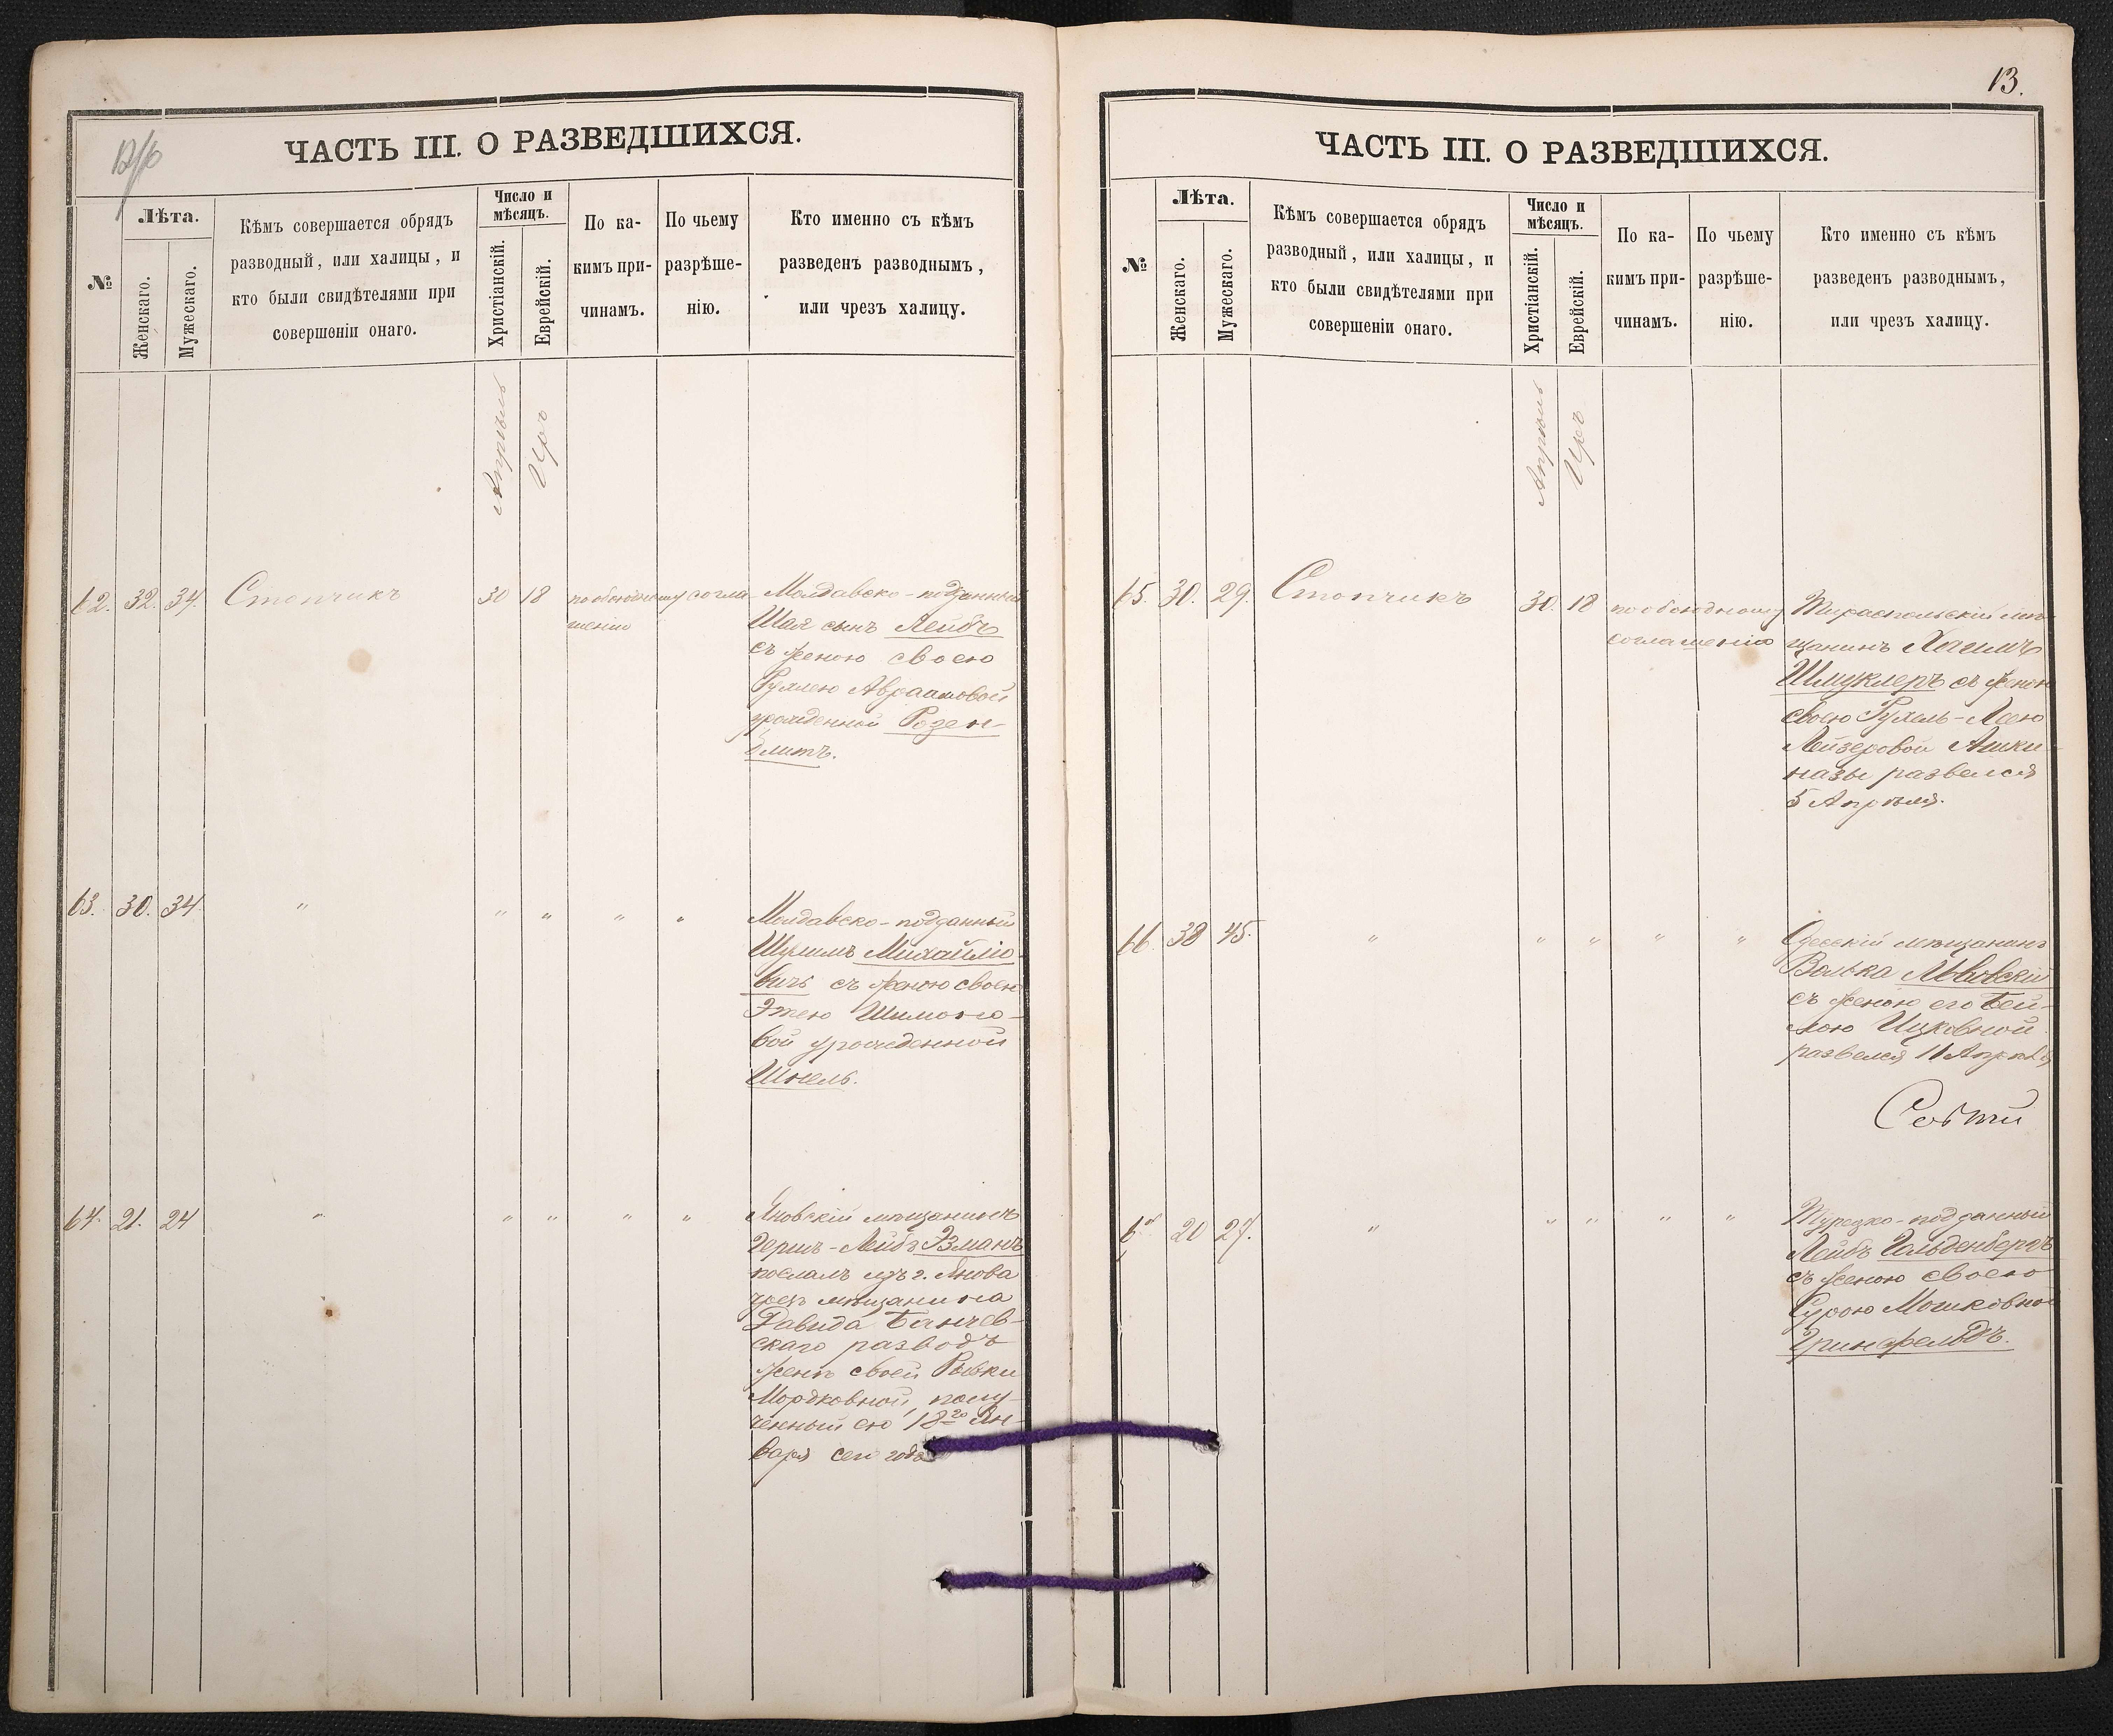 ЧАСТЬ III. О РАЗВЕДШИХСЯ.
№
Лѣта.
Женскаго.
Мужескаго.
Кѣмъ совершается обрядъ
разводный, или халицы, и
кто были свидѣтелями при
совершеніи онаго.
Число и
мѣсяцъ.
Христіанскій.
Еврейскій.
По ка-
кимъ при-
чинамъ.
По чьему
разрѣше-
нію.
Кто именно съ кѣмъ
разведенъ разводнымъ,
или чрезъ халицу.
Апрѣль
Иръ
62. 32. 34. Стопчикъ 30 18 по обоюдному согла-
шенію
Молдавско-подданный
Шая сынъ Лейбъ
съ женою своею
Рухлею Авраамовой
урожденной Розен-
блитъ.
63. 30. 34. " " " " "
Молдавско-подданный
Шулимъ Михайло-
вичъ съ женою своею
Этею Шимоно-
вой урожденной
Шнель.
64. 21. 24 " " " " "
Яновскій мѣщанинъ
Гершъ-Лейбъ Эзманъ
послалъ изъ г. Янова
чрезъ мѣщанина
Давида Банчев-
скаго разводъ
женѣ своей Ривки
Мордковной, полу-
ченный ею 18го Ян-
варя сего года
13.
ЧАСТЬ III. О РАЗВЕДШИХСЯ.
№
Лѣта.
Женскаго.
Мужескаго.
Кѣмъ совершается обрядъ
разводный, или халицы, и
кто были свидѣтелями при
совершеніи онаго.
Число и
мѣсяцъ.
Христіанскій.
Еврейскій.
По ка-
кимъ при-
чинамъ.
По чьему
разрѣше-
нію.
Кто именно съ кѣмъ
разведенъ разводнымъ,
или чрезъ халицу.
Апрѣль
Иръ
65. 30. 29. Стопчикъ 30. 18 по обоюдному
соглашенію
Тираспольскій мѣ-
щанинъ
Шмуклеръ съ женою
своею Рухль-Леею
Лейзеровой Ашки-
назы развелся
5 Апрѣля.
66. 38 45. " " " " "
Одесскій мѣщанинъ
Волько Львовскій
съ женою его Бей-
лою Ицковной
развелся 11 Апрѣля
6 20 27. " " " " "
Турецко-подданный
Лейбъ Гольденбергъ
съ женою своею
Сурою Мошковной
Гринфельдъ.